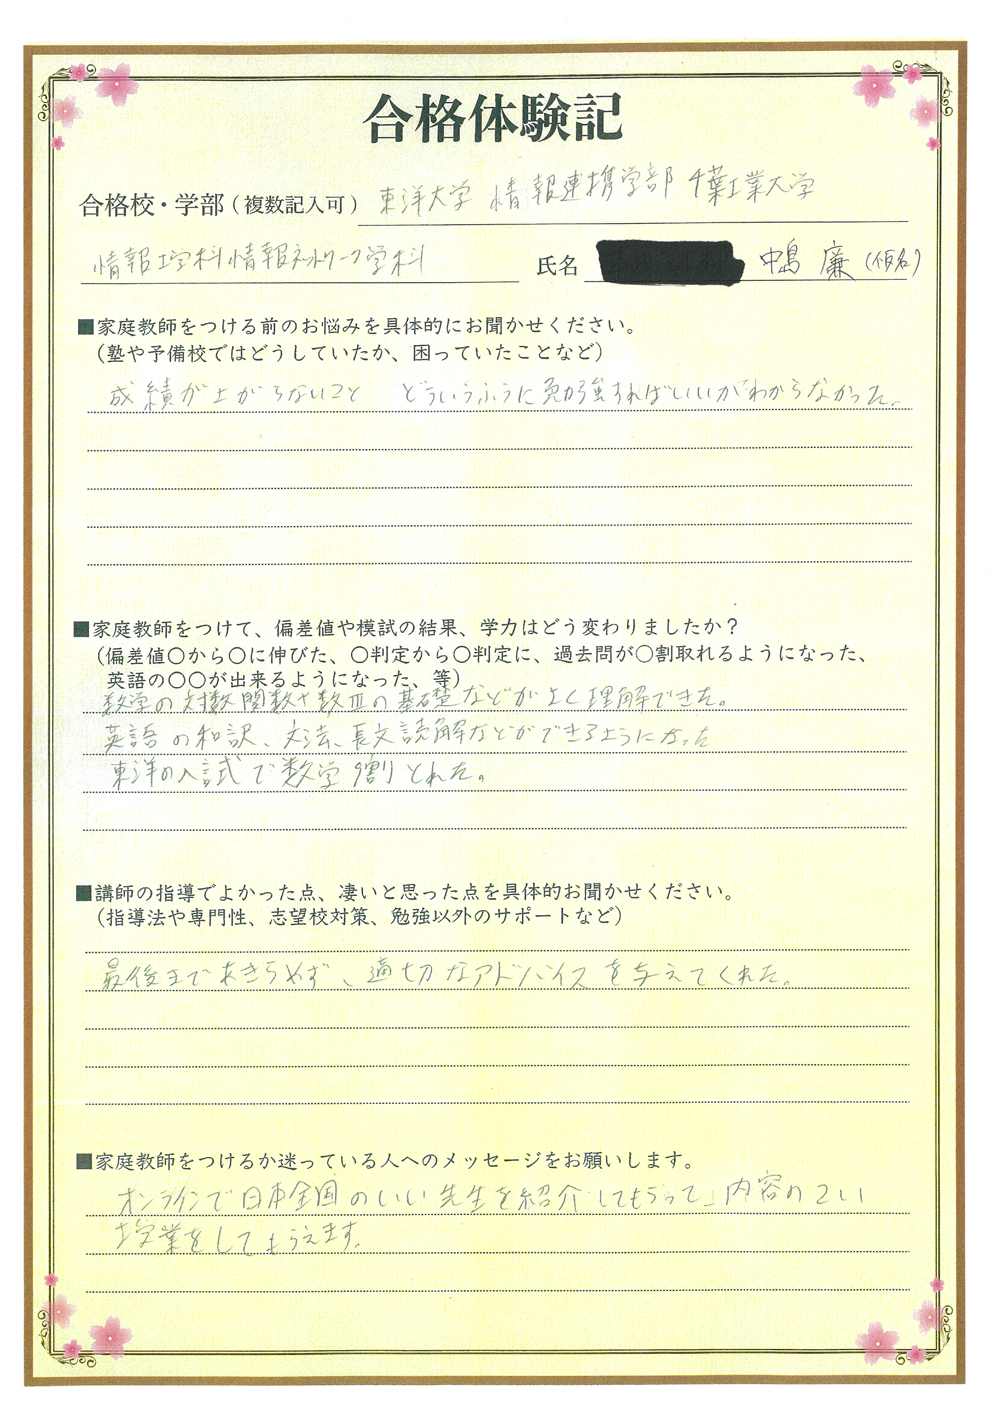 合格体験記
合格校・学部(複数記入可) 東洋大学 情報連携学部 千葉工業大学
情報工学科 情報ネットワーク学科 氏名 中島 廉(仮名)
■家庭教師をつける前のお悩みを具体的にお聞かせください。
(塾や予備校ではどうしていたか、困っていたことなど)
成績が上がらないこと どういうふうに勉強すればいいかわからなかった。
■家庭教師をつけて、偏差値や模試の結果、学力はどう変わりましたか?
(偏差値○から○に伸びた、○判定から○判定に、過去問が○割取れるようになった、
英語の○○が出来るようになった、等)
数学の対数関数や数Ⅲの基礎などがよく理解できた。
英語の和訳、文法、長文読解などができるようになった
東洋の入試で数学9割とれた。
■講師の指導でよかった点、凄いと思った点を具体的お聞かせください。
(指導法や専門性、志望校対策、勉強以外のサポートなど)
最後まであきらめず、適切なアドバイスを与えてくれた。
■家庭教師をつけるか迷っている人へのメッセージをお願いします。
オンラインで日本全国のいい先生を紹介してもらって、内容のこい
授業をしてもらえます。